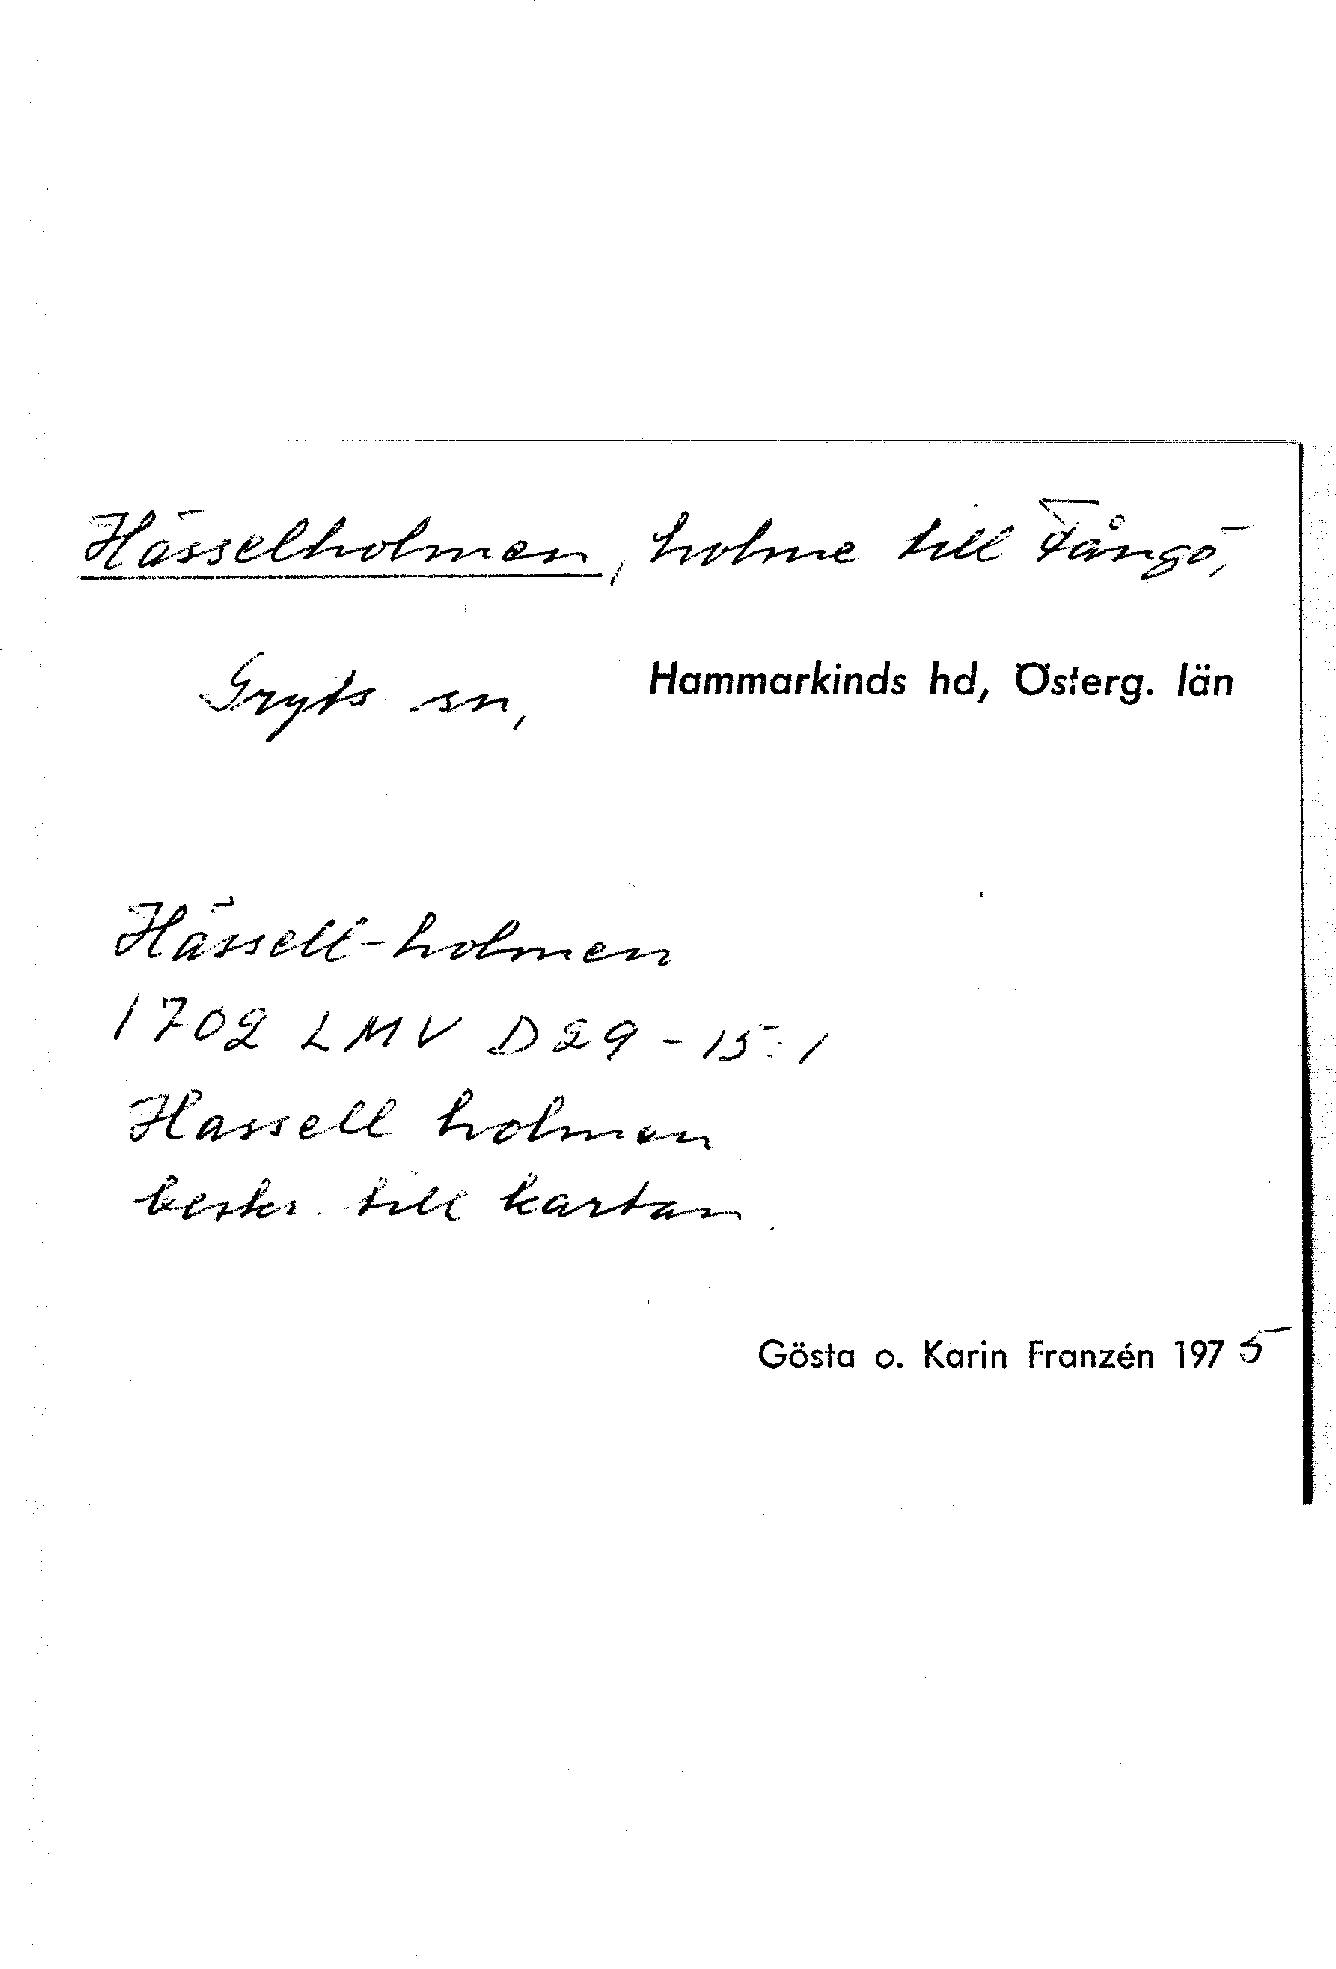 Hässelholmen, holme till Fångö,
Gryts sn, Hammarkinds hd, Österg. län
Hässell-holmen
1702 LMV D29-15:1
Hassell holmen
beskr. till kartan
Gösta o. Karin Franzén 1975